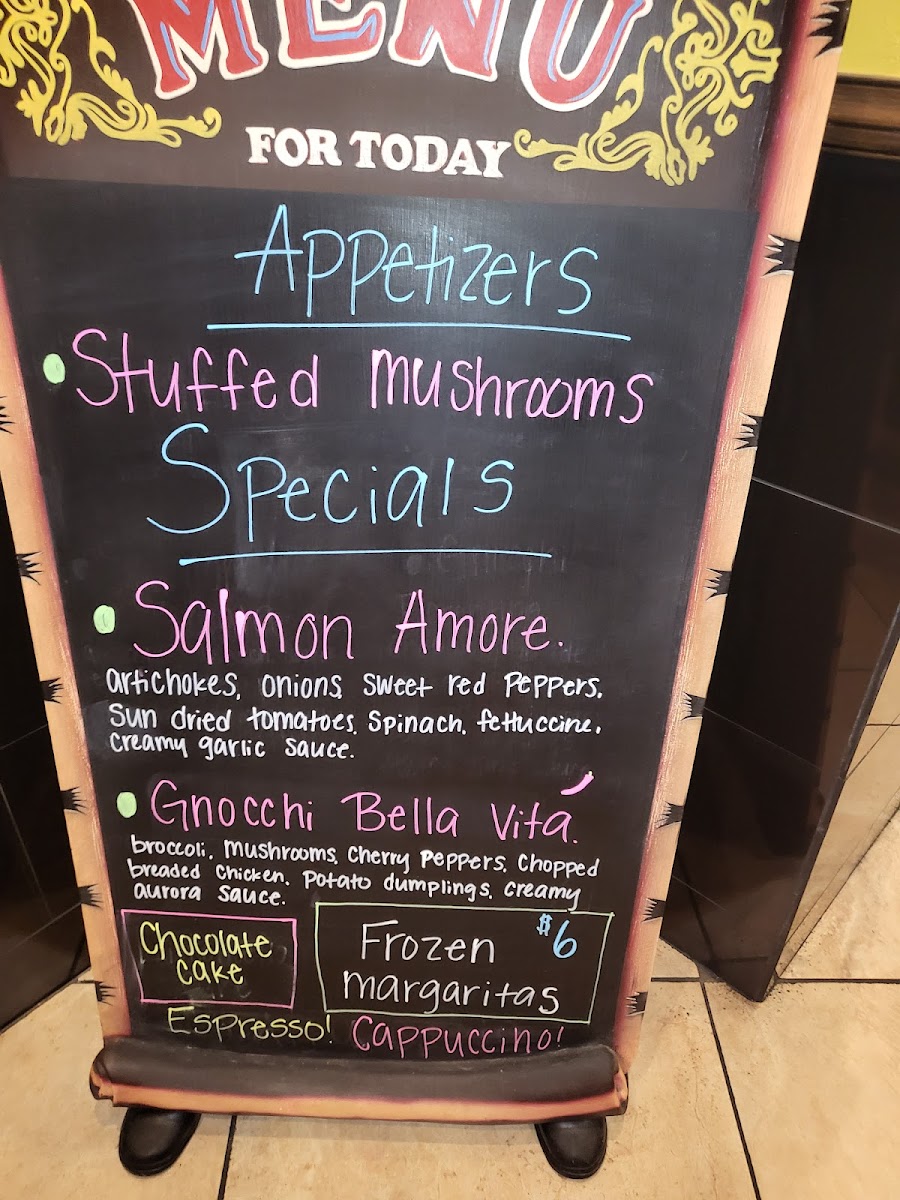 MENU
FOR TODAY
Appetizers
Stuffed mushrooms
Specials
Salmon Amore.
artichokes, onions, sweet red peppers,
sun dried tomatoes, spinach, fettuccine,
creamy garlic sauce.
Gnocchi Bella Vita.
broccoli, mushrooms, cherry peppers, chopped
breaded chicken, potato dumplings, creamy
aurora sauce.
Chocolate
cake
Frozen $6
margaritas
Espresso! Cappuccino!